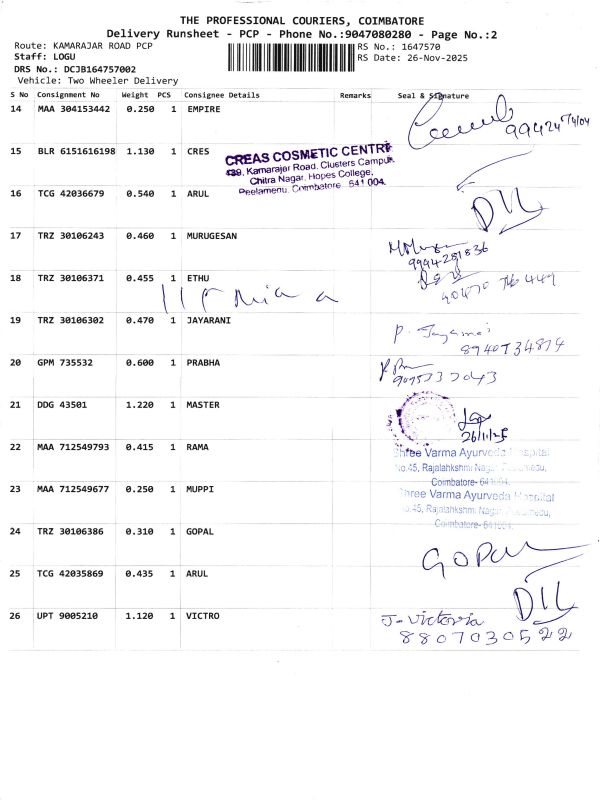 THE PROFESSIONAL COURIERS, COIMBATORE
Delivery Runsheet - PCP - Phone No.:9047080280 - Page No.:2
Route: KAMARAJAR ROAD PCP
RS No.: 1647570
Staff: LOGU
RS Date: 26-Nov-2025
DRS No.: DCJB164757002
Vehicle: Two Wheeler Delivery
S No Consignment No Weight PCS Consignee Details Remarks Seal & Signature
14 MAA 304153442 0.250 1 EMPIRE
15 BLR 6151616198 1.130 1 CRES
CREAS COSMETIC CENTRE
Kamarajar Road, Clusters Campus,
Chitra Nagar, Hopes College,
Peelamedu, Coimbatore 641 004.
16 TCG 42036679 0.540 1 ARUL
17 TRZ 30106243 0.460 1 MURUGESAN
9994281836
18 TRZ 30106371 0.455 1 ETHU
19 TRZ 30106302 0.470 1 JAYARANI
8940734874
20 GPM 735532 0.600 1 PRABHA
21 DDG 43501 1.220 1 MASTER
26/11/25
22 MAA 712549793 0.415 1 RAMA
Shree Varma Ayurveda Hospital
No.45, Rajalahkshmi Nagar,
Coimbatore- 641004.
23 MAA 712549677 0.250 1 MUPPI
Shree Varma Ayurveda Hospital
No.45, Rajalahkshmi Nagar,
Coimbatore- 641004.
24 TRZ 30106386 0.310 1 GOPAL
GOPAL
25 TCG 42035869 0.435 1 ARUL
26 UPT 9005210 1.120 1 VICTRO
J-Victoria
8807030522